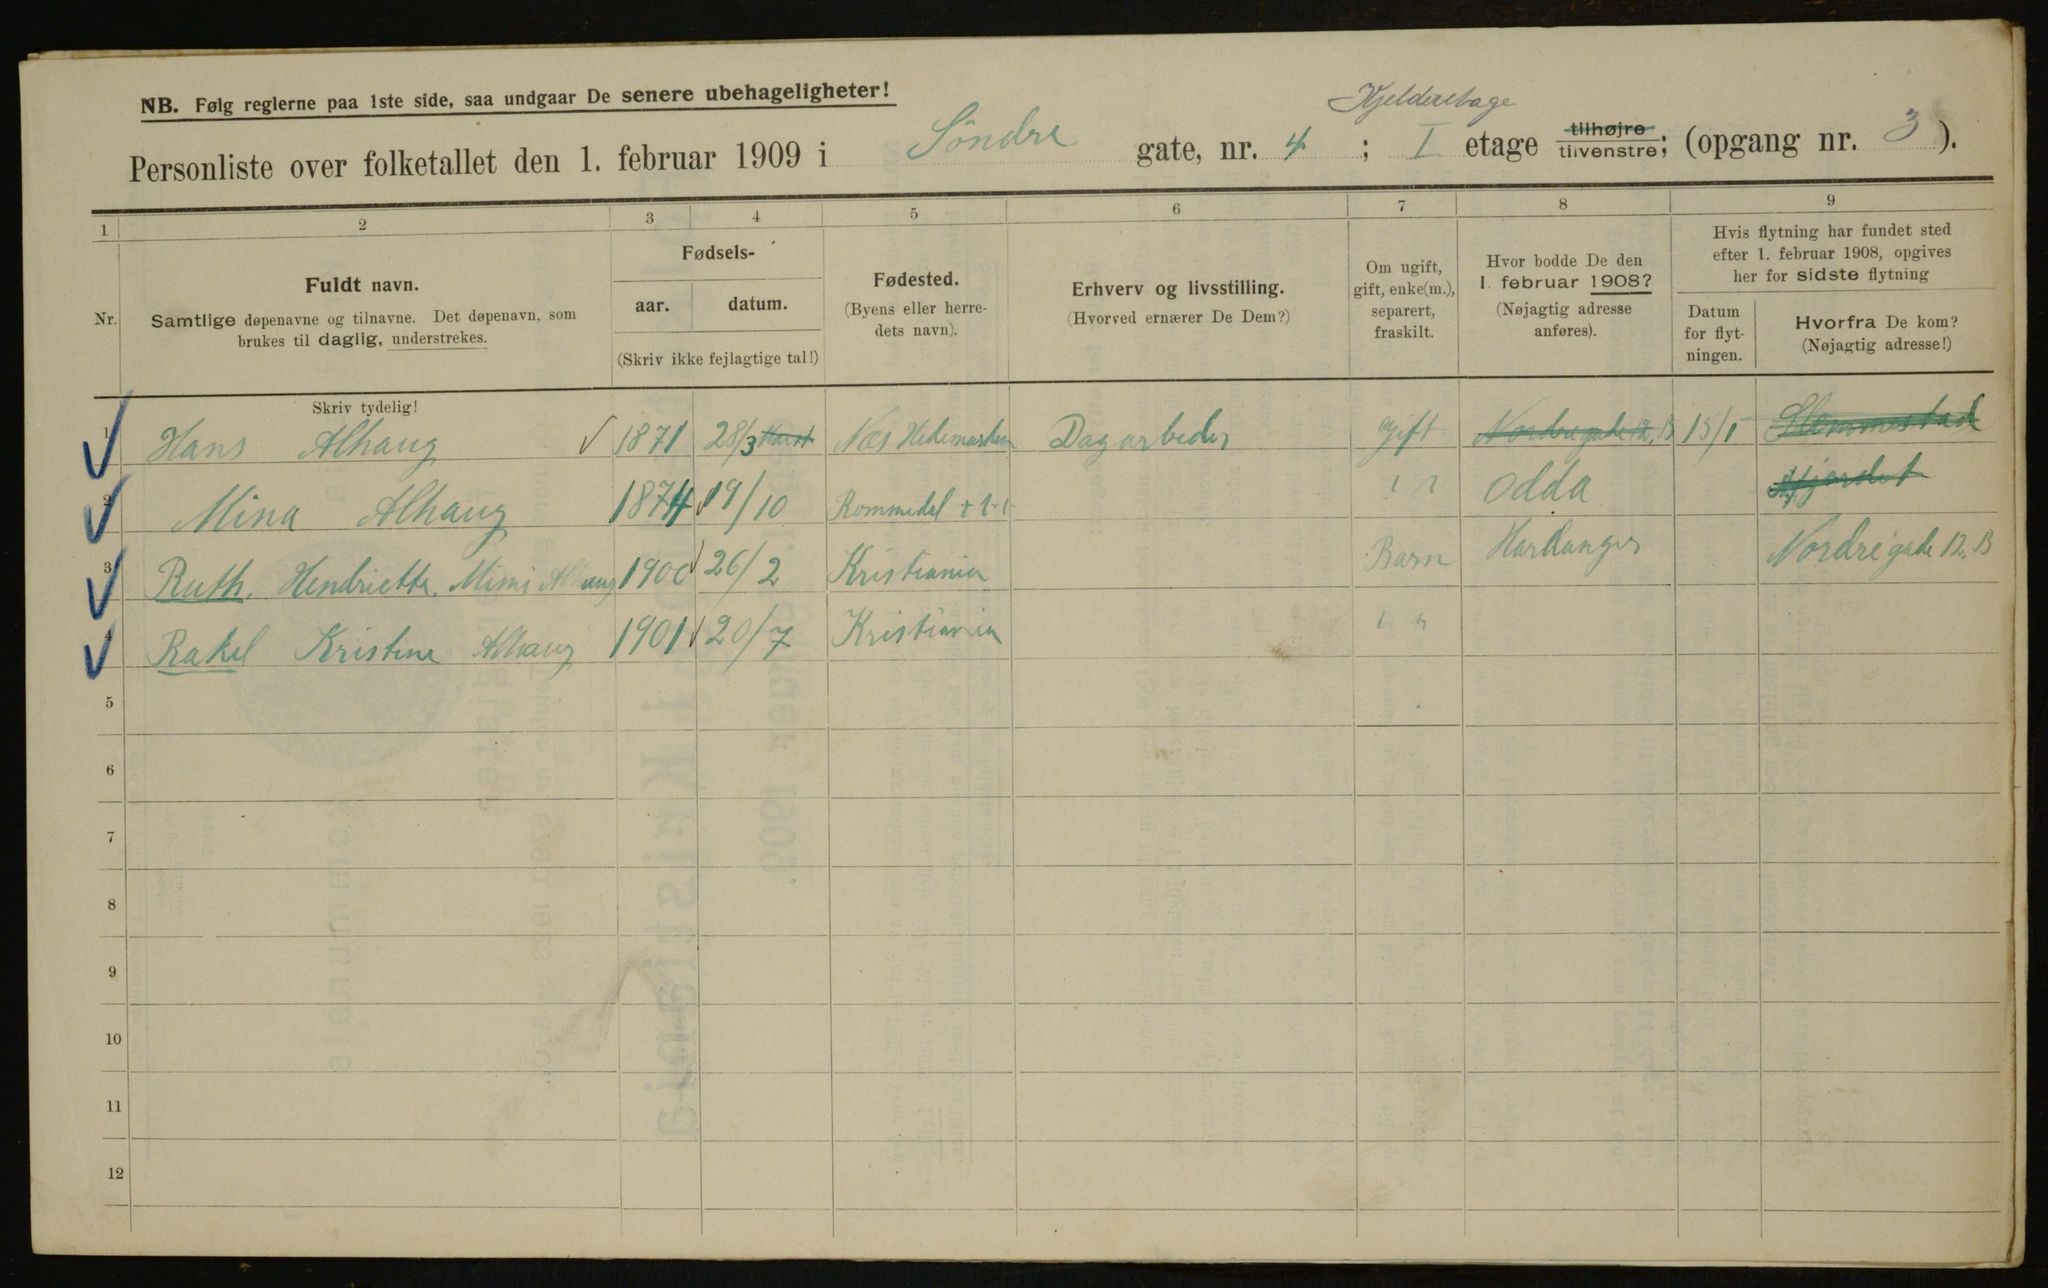 NB. Følg reglerne paa 1ste side, saa undgaar De senere ubehageligheter!
Kjelderetage
Personliste over folketallet den 1. februar 1909 i Söndre gate, nr. 4 ; I etage tilhøjre tilvenstre; (opgang nr. 3 ).
1 2 3 4 5 6 7 8 9
Nr.
Fuldt navn.
Samtlige døpenavne og tilnavne. Det døpenavn, som
brukes til daglig, understrekes.
Skriv tydelig!
Fødsels-
aar. datum.
(Skriv ikke fejlagtige tal!)
Fødested.
(Byens eller herre-
dets navn).
Erhverv og livsstilling.
(Hvorved ernærer De Dem?)
Om ugift,
gift, enke(m.),
separert,
fraskilt.
Hvor bodde De den
1. februar 1908?
(Nøjagtig adresse
anføres).
Hvis flytning har fundet sted
efter 1. februar 1908, opgives
her for sidste flytning
Datum
for flyt-
ningen.
Hvorfra De kom?
(Nøjagtig adresse!)
1 Hans Alhaug 1871 28/3 Næs Hedemarken Dagarbeder Gift Nordregade 12, B 15/1 Slemmestad
2 Mina Alhaug 1874 19/10 Rommedal " " Odda
3 Ruth. Hendriette. Mimi Alhaug 1900 26/2 Kristiania Barn Hardanger Nordregade 12. B
4 Rakel Kristine Alhaug 1901 20/7 Kristiania " "
5
6
7
8
9
10
11
12